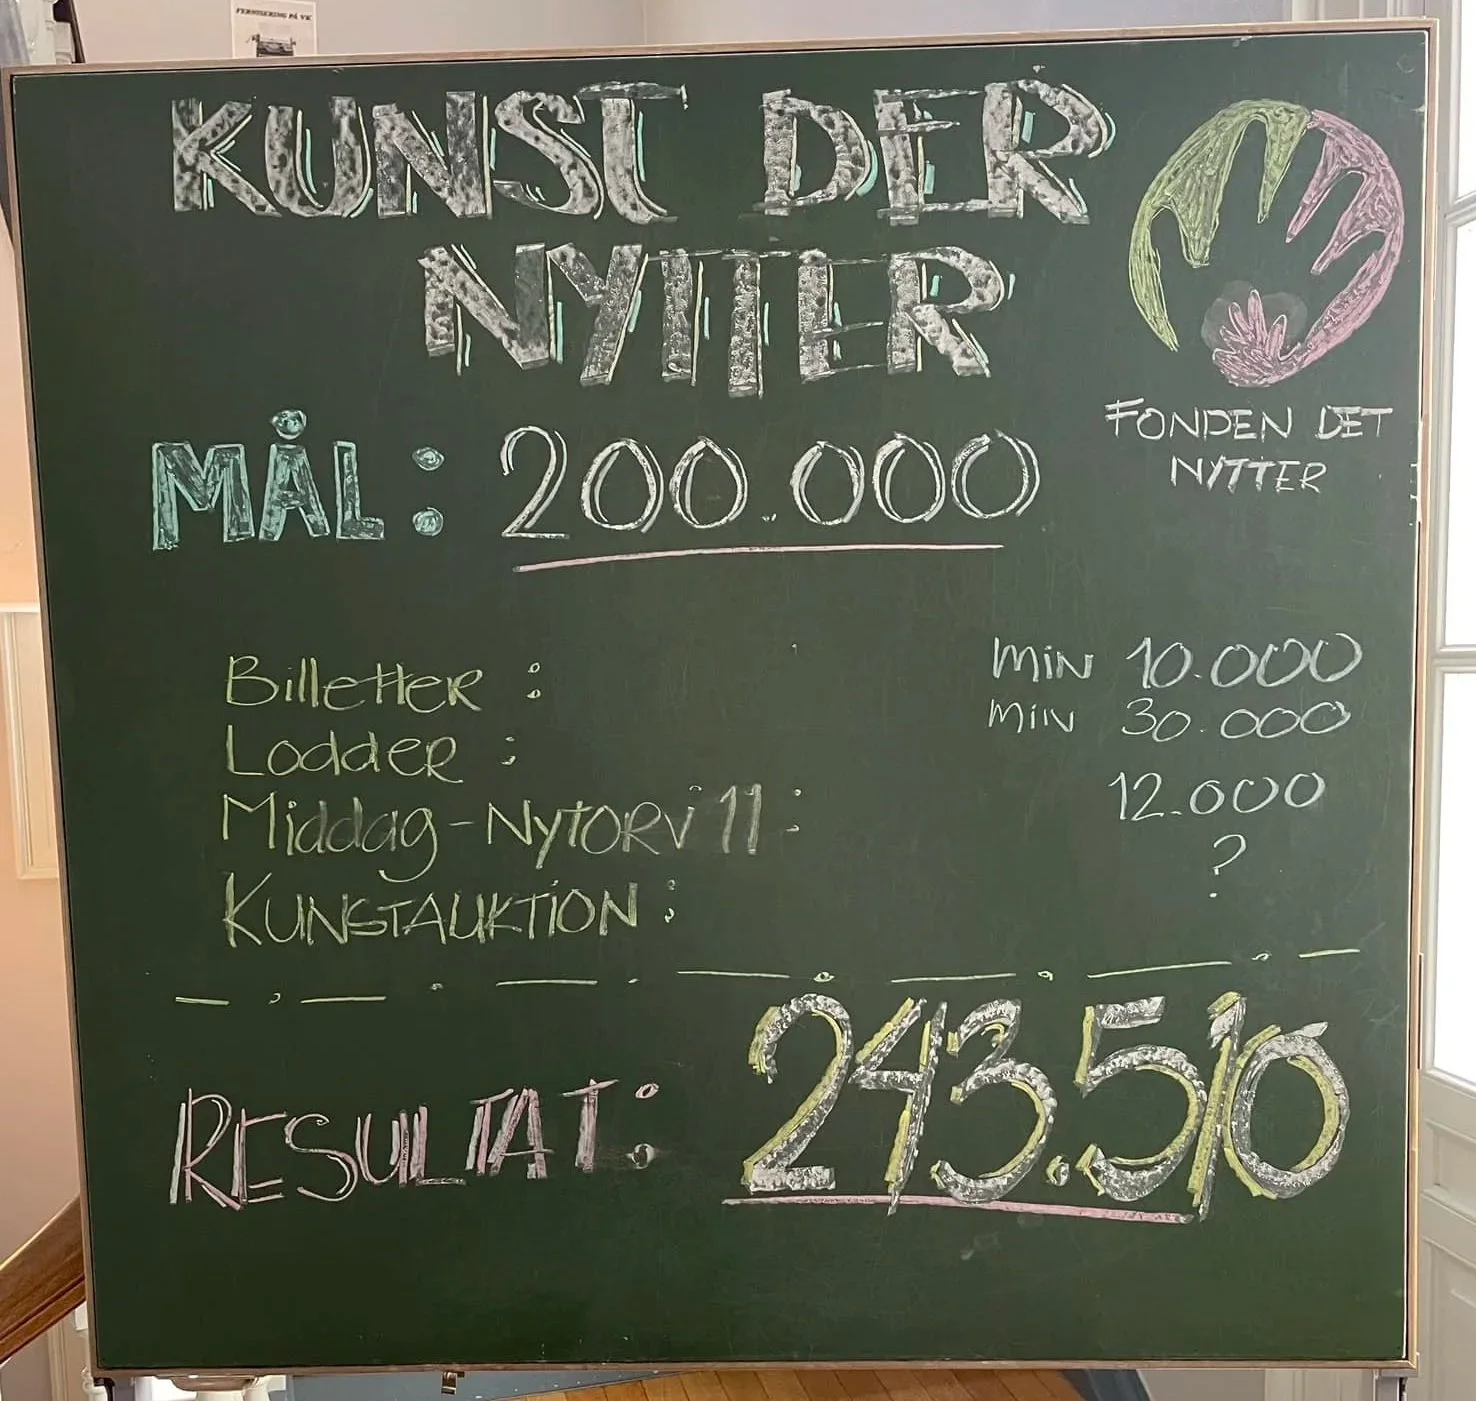 FERNISERING PÅ VK
KUNST DER
NYTTER
FONDEN DET
NYTTER
MÅL: 200.000
Billetter: min 10.000
Lodder: min 30.000
Middag-Nytorv 11: 12.000
Kunstauktion: ?
RESULTAT: 243.510